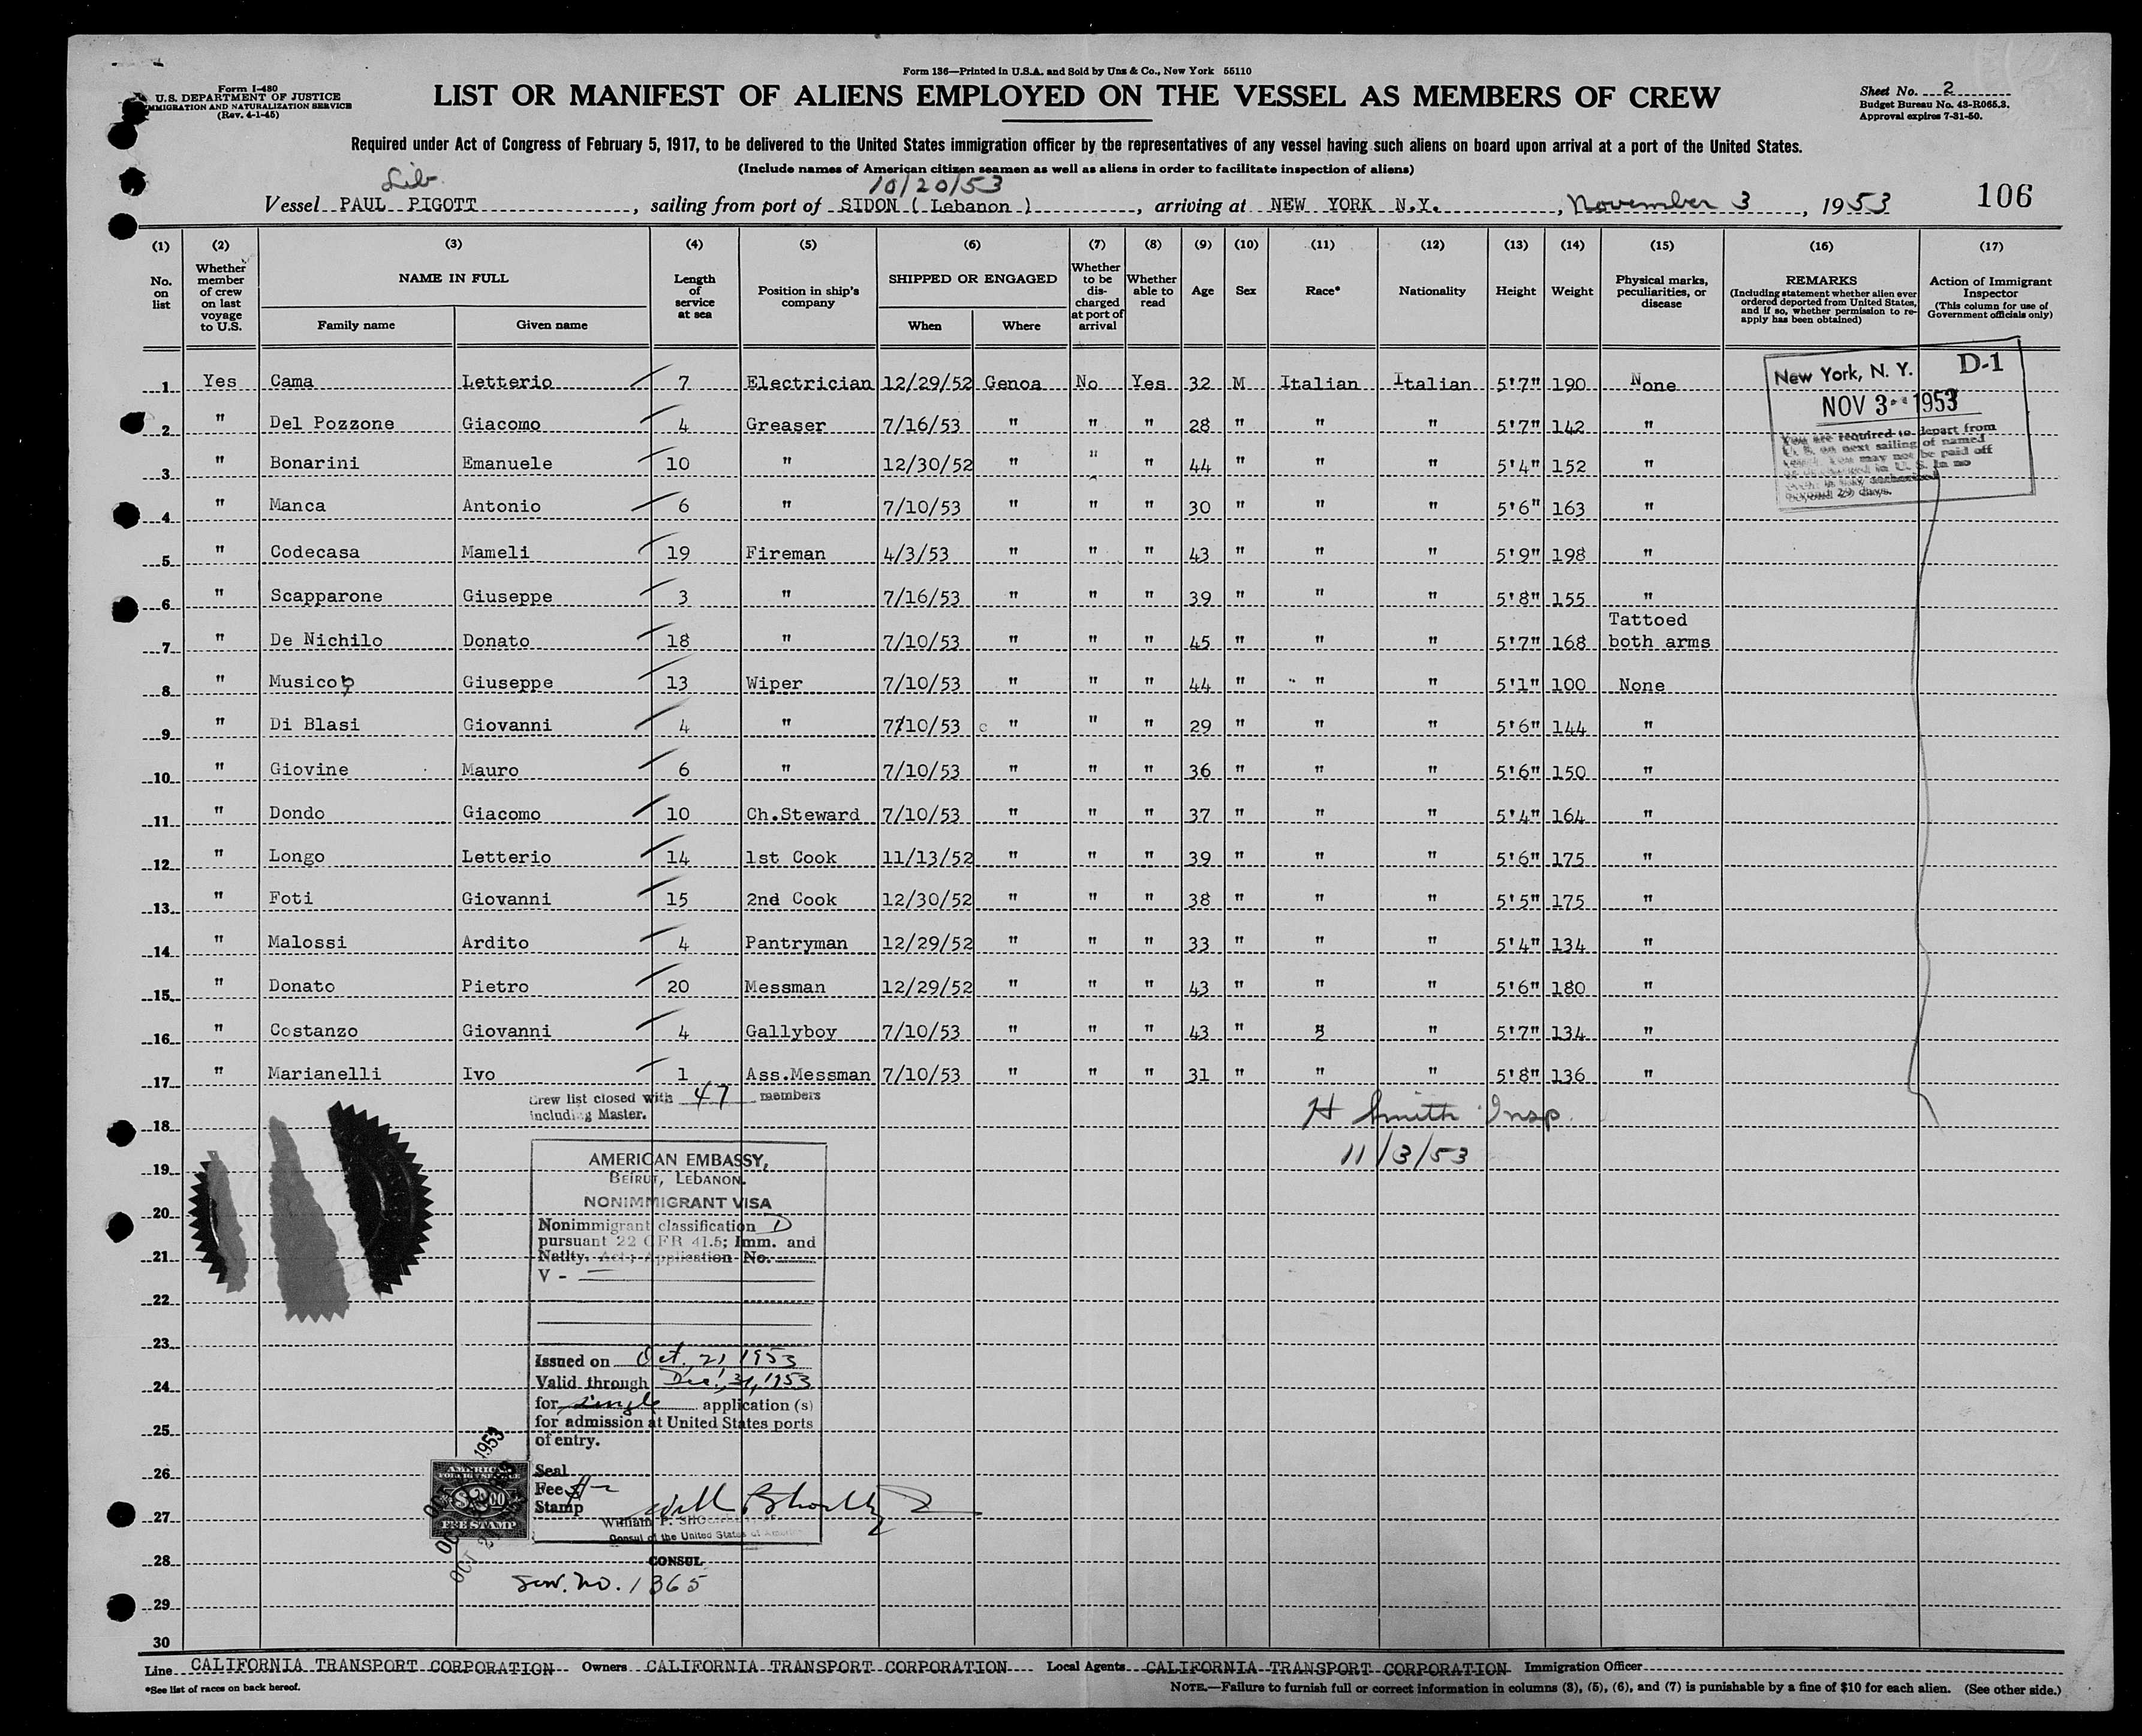 Form 136—Printed in U.S.A. and Sold by Unz & Co., New York 55110
Form I-480
U.S. DEPARTMENT OF JUSTICE
IMMIGRATION AND NATURALIZATION SERVICE
(Rev. 4-1-45)
LIST OR MANIFEST OF ALIENS EMPLOYED ON THE VESSEL AS MEMBERS OF CREW
Sheet No. 2
Budget Bureau No. 43-R065.3.
Approval expires 7-31-50.
Required under Act of Congress of February 5, 1917, to be delivered to the United States immigration officer by the representatives of any vessel having such aliens on board upon arrival at a port of the United States.
(Include names of American citizen seamen as well as aliens in order to facilitate inspection of aliens)
Lib. 10/20/53
Vessel PAUL PIGOTT, sailing from port of SIDON ( Lebanon ), arriving at NEW YORK N.Y., November 3, 1953 106
(1) (2) (3) (4) (5) (6) (7) (8) (9) (10) (11) (12) (13) (14) (15) (16) (17)
No. on list
Whether member of crew on last voyage to U.S.
NAME IN FULL
Family name Given name
Length of service at sea
Position in ship's company
SHIPPED OR ENGAGED
When Where
Whether to be discharged at port of arrival
Whether able to read
Age
Sex
Race*
Nationality
Height
Weight
Physical marks, peculiarities, or disease
REMARKS
(Including statement whether alien ever ordered deported from United States, and if so, whether permission to reapply has been obtained)
Action of Immigrant Inspector
(This column for use of Government officials only)
1 Yes Cama Letterio 7 Electrician 12/29/52 Genoa No Yes 32 M Italian Italian 5'7" 190 None
2 " Del Pozzone Giacomo 4 Greaser 7/16/53 " " " 28 " " " 5'7" 142 "
3 " Bonarini Emanuele 10 " 12/30/52 " " " 44 " " " 5'4" 152 "
4 " Manca Antonio 6 " 7/10/53 " " " 30 " " " 5'6" 163 "
5 " Codecasa Mameli 19 Fireman 4/3/53 " " " 43 " " " 5'9" 198 "
6 " Scapparone Giuseppe 3 " 7/16/53 " " " 39 " " " 5'8" 155 "
7 " De Nichilo Donato 18 " 7/10/53 " " " 45 " " " 5'7" 168 Tattoed both arms
8 " Musico Giuseppe 13 Wiper 7/10/53 " " " 44 " " " 5'1" 100 None
9 " Di Blasi Giovanni 4 " 7/10/53 c " " " 29 " " " 5'6" 144 "
10 " Giovine Mauro 6 " 7/10/53 " " " 36 " " " 5'6" 150 "
11 " Dondo Giacomo 10 Ch.Steward 7/10/53 " " " 37 " " " 5'4" 164 "
12 " Longo Letterio 14 1st Cook 11/13/52 " " " 39 " " " 5'6" 175 "
13 " Foti Giovanni 15 2nd Cook 12/30/52 " " " 38 " " " 5'5" 175 "
14 " Malossi Ardito 4 Pantryman 12/29/52 " " " 33 " " " 5'4" 134 "
15 " Donato Pietro 20 Messman 12/29/52 " " " 43 " " " 5'6" 180 "
16 " Costanzo Giovanni 4 Gallyboy 7/10/53 " " " 43 " " " 5'7" 134 "
17 " Marianelli Ivo 1 Ass.Messman 7/10/53 " " " 31 " " " 5'8" 136 "
New York, N. Y. D-1
NOV 3 - 1953
You are required to depart from
U. S. on next sailing of named
vessel. You may not be paid off
or discharged in U. S. In no
beyond 29 days.
Crew list closed with 47 members
including Master.
H Smith Insp.
11/3/53
18
19
20
21
22
23
24
25
26
27
28
29
30
AMERICAN EMBASSY,
BEIRUT, LEBANON.
NONIMMIGRANT VISA
Nonimmigrant classification D
pursuant 22 CFR 41.5; Imm. and
Natlty. Act; Application No.
V -
Issued on Oct. 21 1953
Valid through Dec. 31, 1953
for single application (s)
for admission at United States ports
of entry.
Seal
Fee
Stamp
William P.
Consul of the United States of America
CONSUL
Serv. No. 1365
AMERICAN
FOREIGN SERVICE
$2.00
FEE STAMP
OCT 1953
OCT 2
Line CALIFORNIA TRANSPORT CORPORATION Owners CALIFORNIA TRANSPORT CORPORATION Local Agents CALIFORNIA TRANSPORT CORPORATION Immigration Officer
*See list of races on back hereof.
NOTE.—Failure to furnish full or correct information in columns (3), (5), (6), and (7) is punishable by a fine of $10 for each alien. (See other side.)